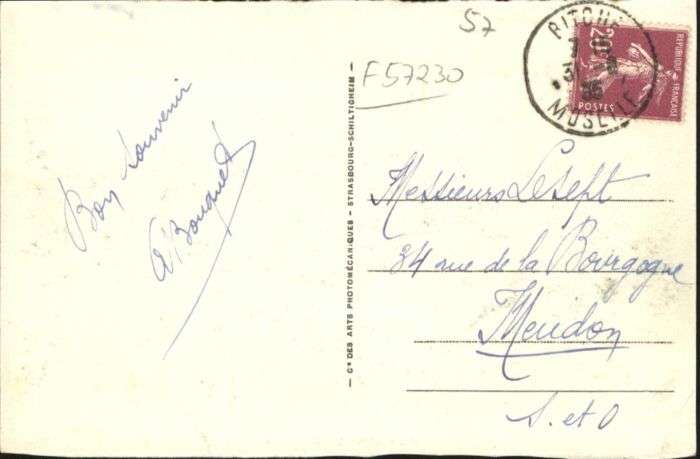 57
F57230
BITCHE
MOSELLE
REPUBLIQUE FRANCAISE
POSTES
Bon souvenir
A Bouquet
Cie DES ARTS PHOTOMÉCANIQUES - STRASBOURG-SCHILTIGHEIM
Messieurs Lesept
34 rue de la Bourgogne
Meudon
S. et O